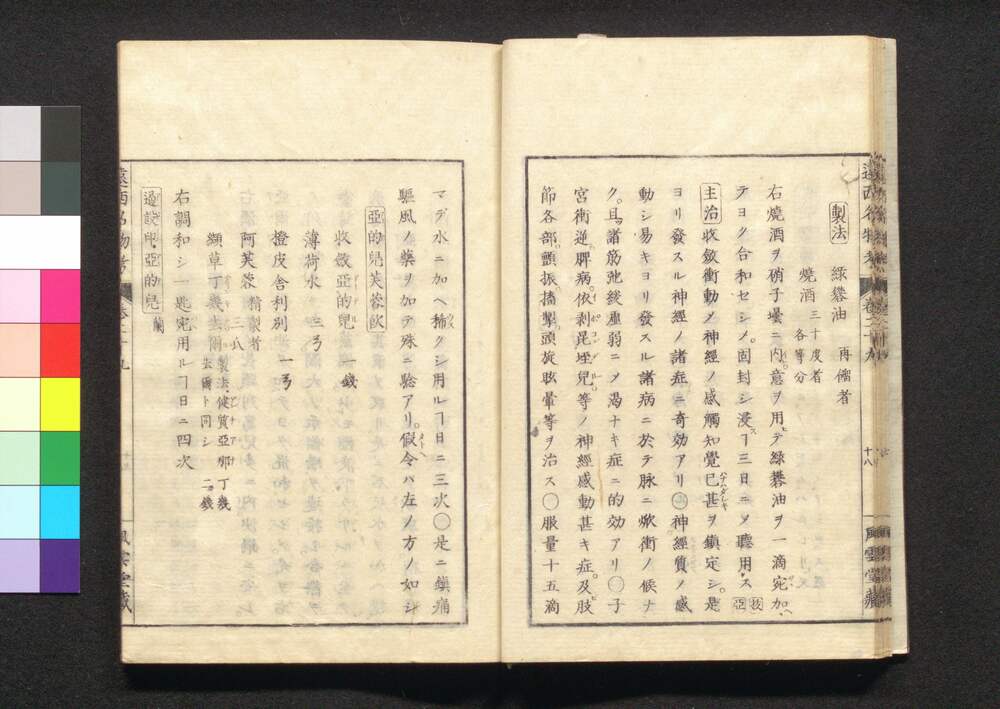 製法
緑礬油 再餾者
焼酒 三十度者 各等分
右焼酒ヲ硝子壜ニ内意ヲ用ヒテ緑礬油ヲ一滴宛加ヘ
テヨク合和セシメ固封シ浸スヿ三日ニメ聴用ス
主治 收斂衝動メ神經ノ感觸知覺已甚ヲ鎮定シ是
ヨリ發スル神經ノ諸症ニ奇効アリ〇神經質ノ感
動シ易キヨリ發スル諸病ニ於テ脉ニ焮衝ノ候ナ
ク且諸筋弛緩虚弱ニメ渇ナキ症ニ的効アリ〇子
宮衝逆脾病依剥昆垤兒等ノ神經感動甚キ症及肢
節各部顫振搐掣頭旋眩暈等ヲ治ス〇服量十五滴
遠西名物考 卷二十九
十八
風雲堂藏
マデ水ニ加ヘ稀クシ用ルヿ日ニ三次〇是ニ鎮痛
驅風ノ藥ヲ加テ殊ニ驗アリ假令ハ左ノ方ノ如シ
亞的兒芙蓉飲
收斂亞的兒 一錢
薄荷水 三弓
橙皮舎利別 一弓
阿芙蓉 精製者 三八
纈草丁幾去爾 製法健質亞那丁幾去爾ト同シ 二錢
右調和シ一匙宛用ルヿ日ニ四次
亞的兒 蘭
遠西名物考 卷二十九
風雲堂藏